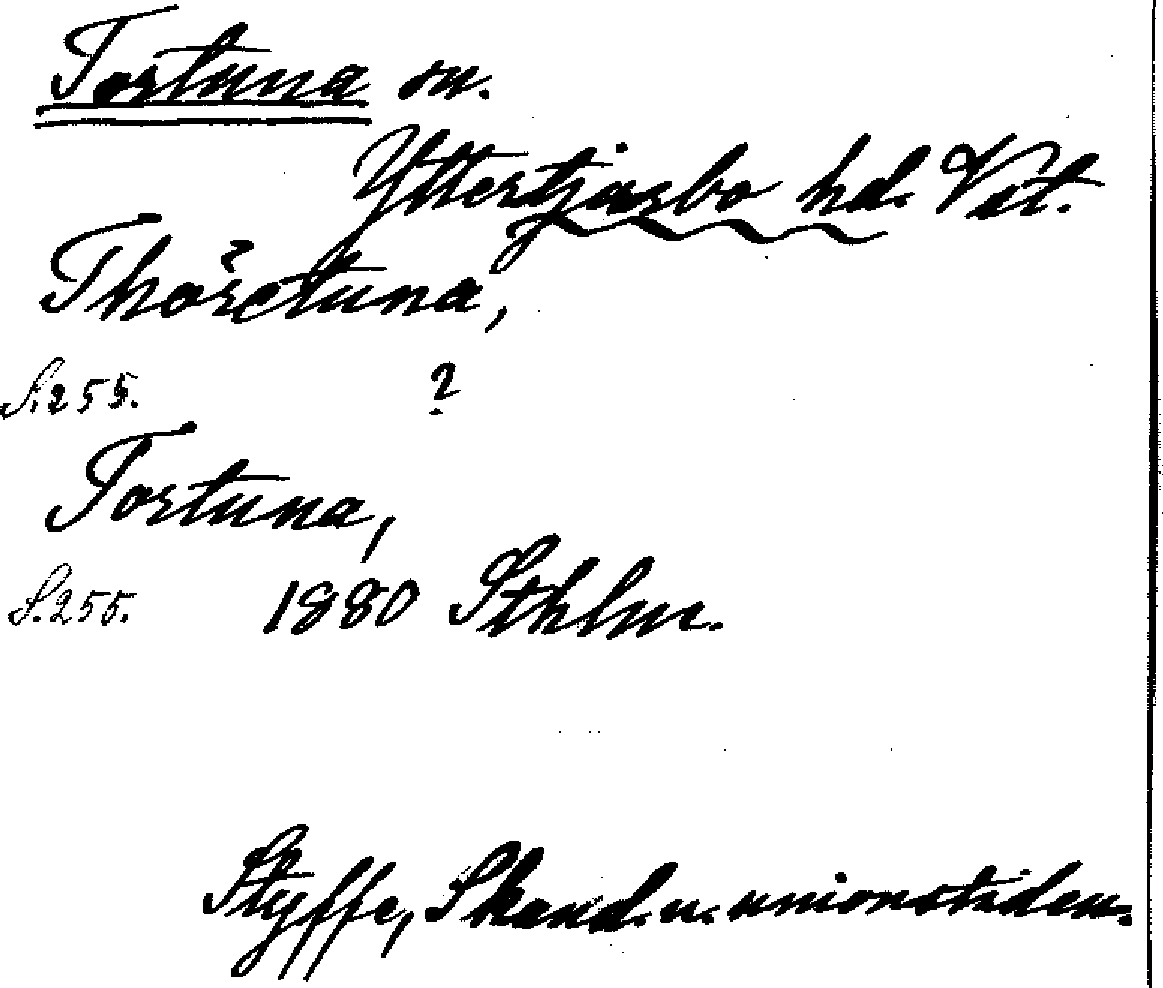 Tortuna sn.
Yttertjurbo hd. Vst.
Thöretuna,
S. 255. ?
Tortuna,
S. 255. 1880 Sthlm.
Styffe, Skand. u. unionstiden.